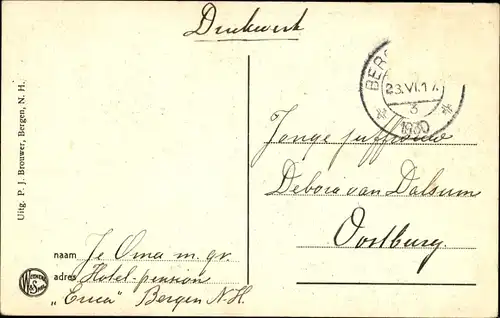 Drukwerk
BERG
23.VI.17
3
1930
Jonge juffrouw
Debora van Dalsum
Oostburg
naam Je Oma m. gr.
adres Hotel-pension
„Erica" Bergen N-H.
Uitg. P. J. Brouwer, Bergen, N. H.